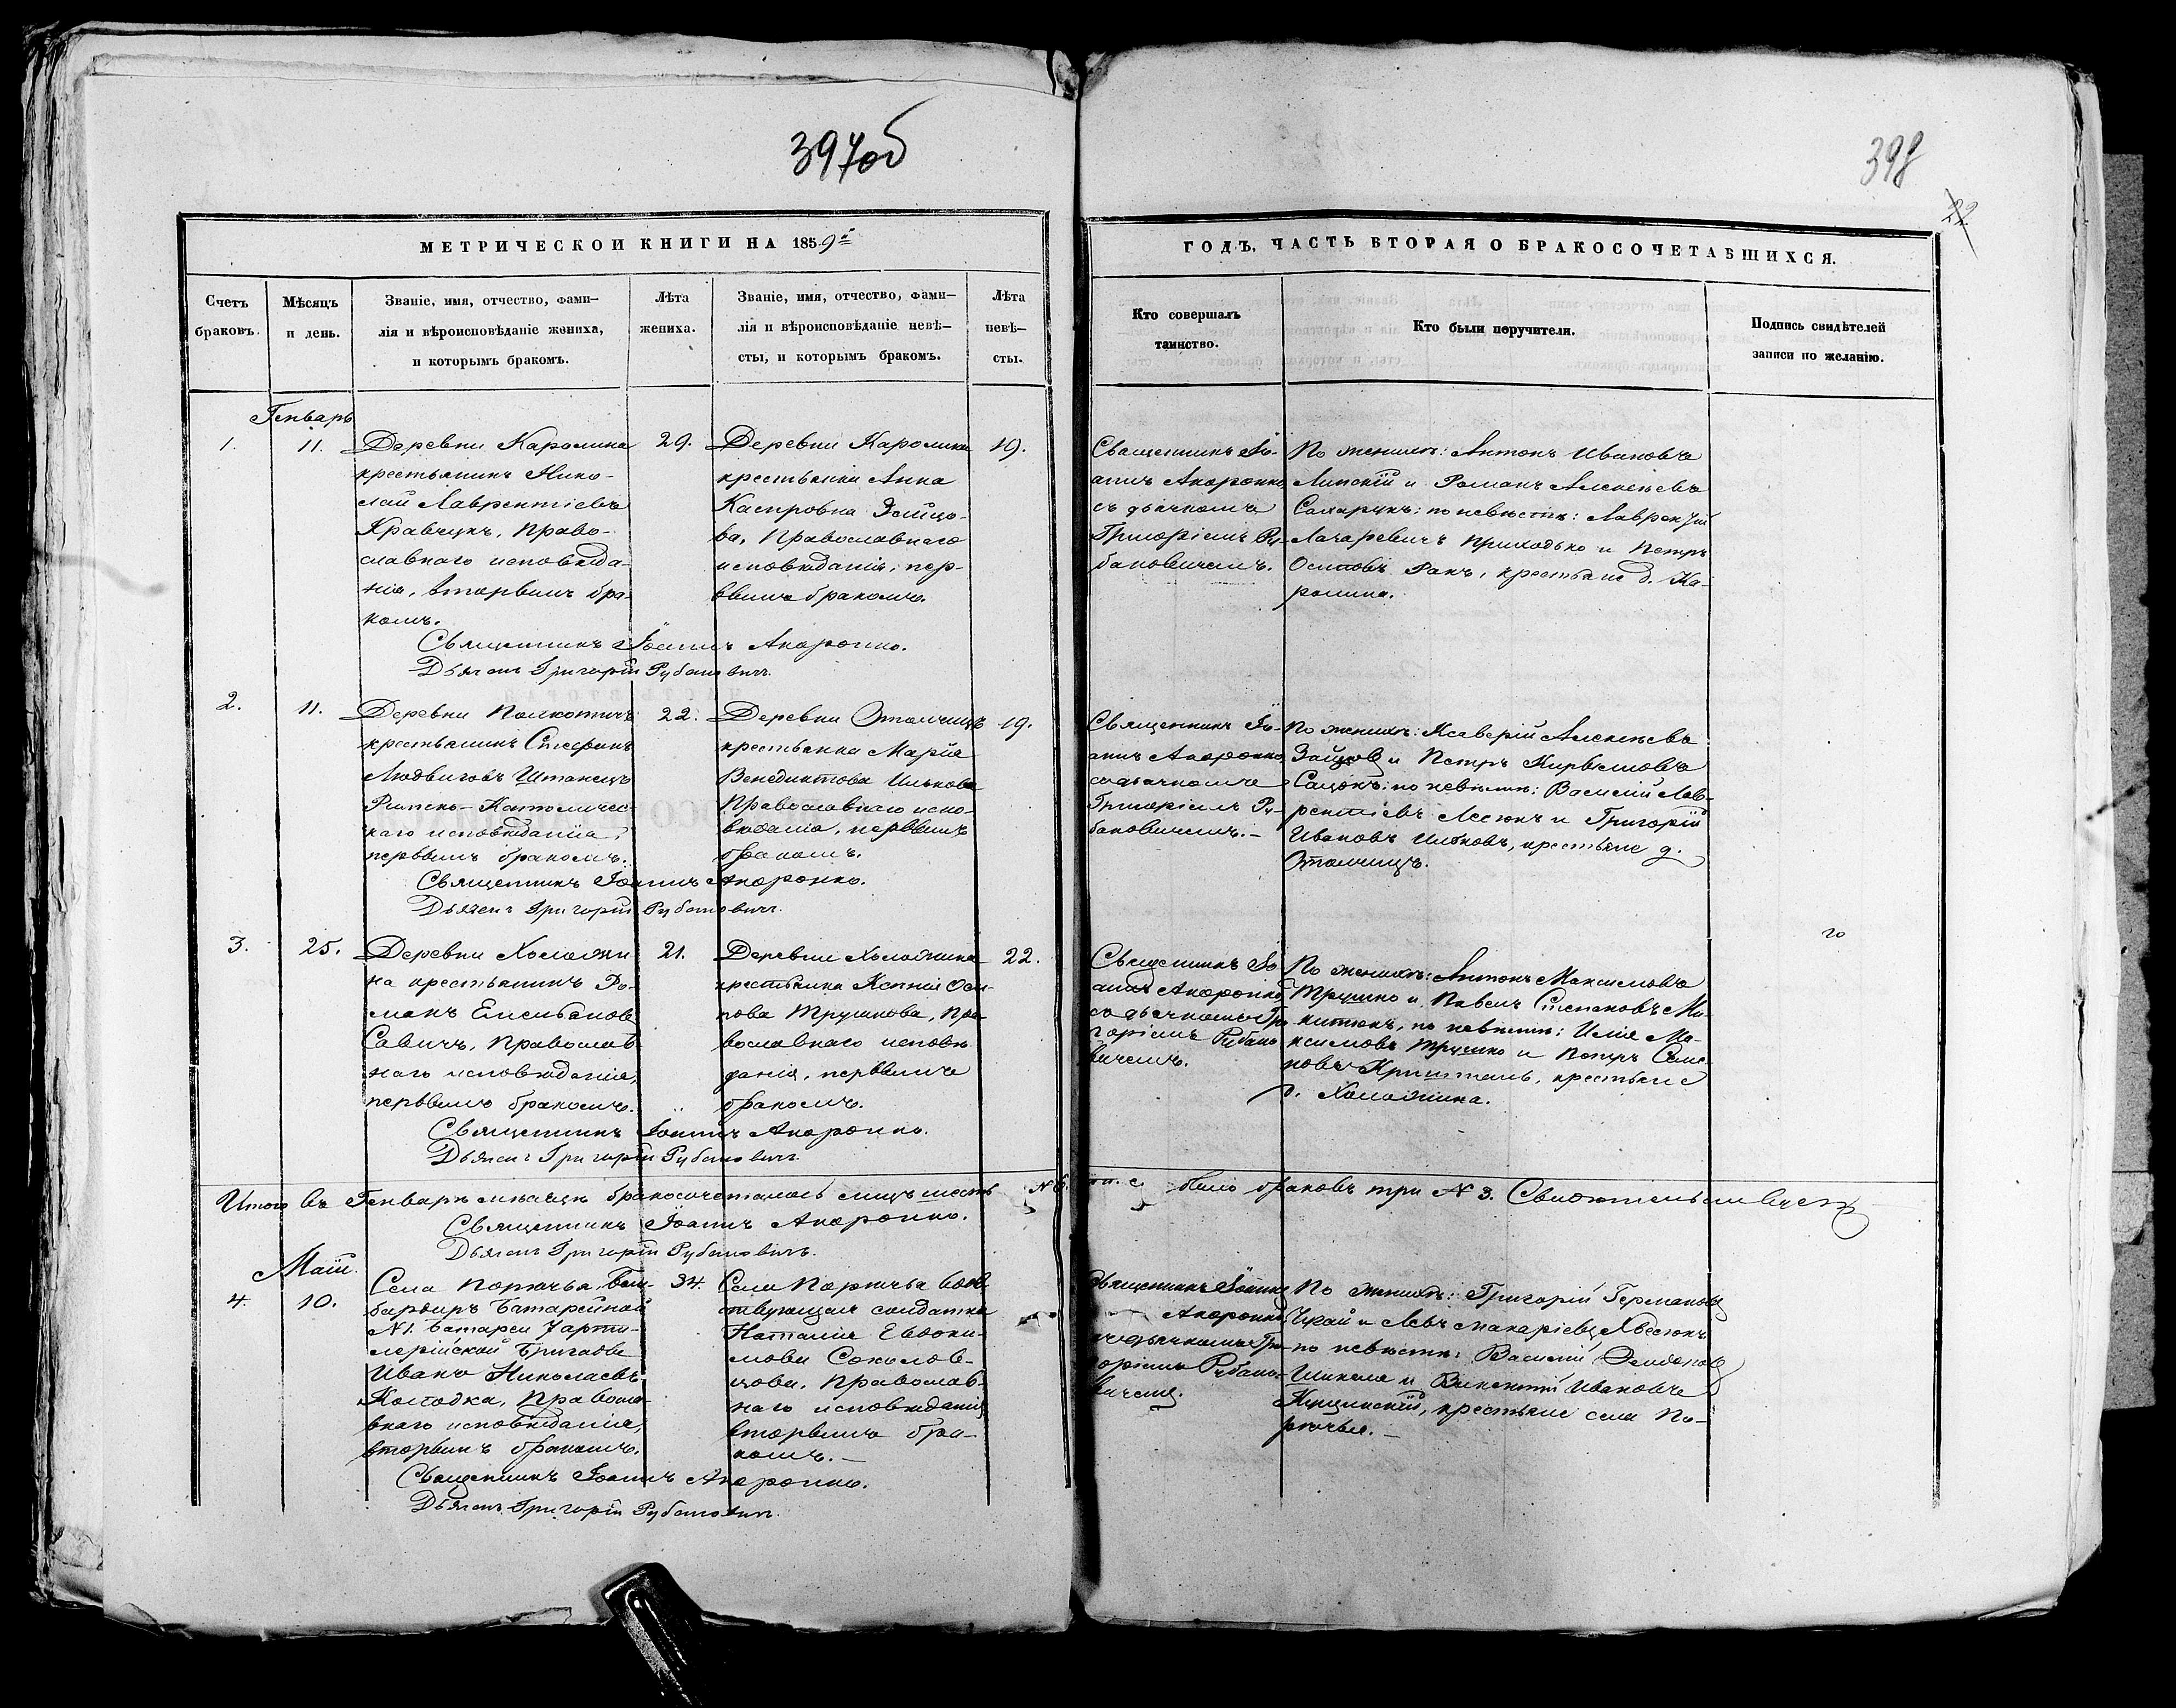 397об
398
22
МЕТРИЧЕСКОЙ КНИГИ НА 1859й
Счетъ браковъ.
Мѣсяцъ и день.
Званіе, имя, отчество, фами-
лія и вѣроисповѣданіе жениха,
и которымъ бракомъ.
Лѣта жениха.
Званіе, имя, отчество, фами-
лія и вѣроисповѣданіе невѣ-
сты, и которымъ бракомъ.
Лѣта невѣ-
сты.
ГОДЪ, ЧАСТЬ ВТОРАЯ О БРАКОСОЧЕТАВШИХСЯ.
Кто совершалъ
таинство.
Кто были поручители.
Подпись свидѣтелей
записи по желанію.
Генварь
1.
11.
Деревни Каролина
крестьянинъ Нико-
лай Лаврентіевъ
Кравчукъ, Право-
славнаго исповѣда-
нія, вторымъ бра-
комъ.
29.
Деревни Каролина
крестьянка Анна
Каспровна Зайцо-
ва, Православнаго
исповѣданія, пер-
вымъ бракомъ.
19.
Священникъ Іо-
аннъ
съ дьячкомъ
Григоріемъ Ру-
бановичемъ.
По женихѣ: Антонъ Ивановъ
Липскій и Романъ Алексѣевъ
по невѣстѣ:
Лазаревичъ Приходько и Петръ
Осиповъ Ракъ, крестьяне д. Ка-
ролина.
Священникъ Іоаннъ
Дьячекъ Григорій Рубановичъ.
2.
11.
Деревни
крестьянинъ Стефанъ
Людвиговъ
Римско-Католичес-
каго исповѣданія,
первымъ бракомъ.
22.
Деревни Отолчицъ
крестьянка Марія
Венедиктова Илькова
Православнаго испо-
вѣданія, первымъ
бракомъ.
19.
Священникъ Іо-
аннъ
съ дьячкомъ
Григоріемъ Ру-
бановичемъ.-
По женихѣ: Ксаверій Алексѣевъ
Зайцовъ и Петръ
по невѣстѣ: Василій Лав-
рентіевъ и Григорій
Ивановъ Ильковъ, крестьяне д.
Отолчицъ.
Священникъ Іоаннъ
Дьячекъ Григорій Рубановичъ.
3.
25.
Деревни Холожи
на крестьянинъ Ро-
манъ Емельяновъ
Савичъ, Православ
наго исповѣданія,
первымъ бракомъ.
21.
Деревни Холожина
крестьянка Ксенія Оси-
пова Трушкова, Пра-
вославнаго исповѣ
данія, первымъ
бракомъ.
22.
Священникъ Іо
аннъ
съ дьячкомъ Гри
горіемъ Рубано
вичемъ.
По женихѣ: Антонъ Максимовъ
Трушко и Павелъ Степановъ Ми-
китюкъ, по невѣстѣ: Илія Ма-
ксимовъ Трушко и Петръ Семе-
новъ крестьяне
д. Холожина.
Священникъ Іоаннъ
Дьячекъ Григорій Рубановичъ.
Итого въ Генварѣ мѣсяцѣ бракосочеталось лицъ шесть N 6. было браковъ три N 3.
Священникъ Іоаннъ
Дьячекъ Григорій Рубановичъ.
Маій.
4.
10.
Села Порѣчья Бом-
бардиръ Батарейной
N 1. батареи 7 арти-
лерійской бригады
Иванъ Николаевъ
Колодка, Правосла-
внаго исповѣданія,
вторымъ бракомъ.
34.
Села Порѣчья вдов-
ствующая солдатка
Наталія Евдоки-
мова Соколов-
цова, Православ-
наго исповѣданія,
вторымъ бра-
комъ.-
Священникъ Іоаннъ
съ дьячкомъ Гри-
горіемъ Рубано-
вичемъ.
По женихѣ: Григорій Германовъ
и Левъ Макаріевъ
по невѣстѣ: Василій
и Викентій Ивановъ
крестьяне села По-
рѣчья.-
Священникъ Іоаннъ
Дьячекъ Григорій Рубановичъ.